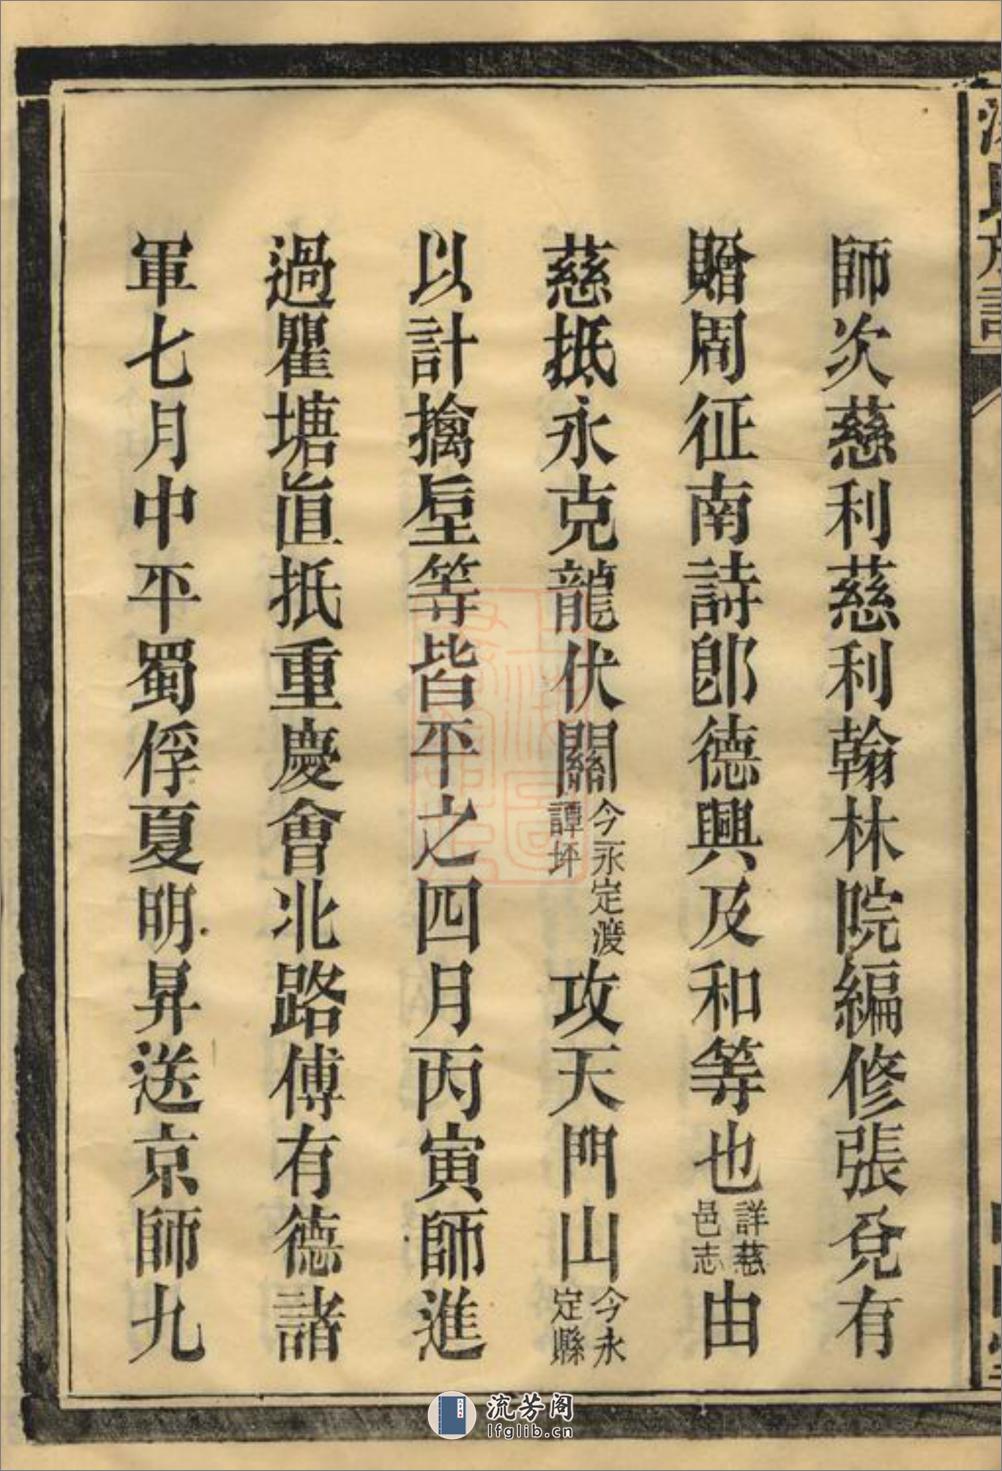 師次慈利慈利翰林院編修張兌有
贈周征南詩郎德興及和等也詳慈邑志由
慈抵永克龍伏關今永定渡譚坪攻天門山今永定縣
以計擒垕等皆平之四月丙寅師進
過瞿塘直抵重慶會北路傅有德諸
軍七月中平蜀俘夏明昇送京師九
流芳阁
lfglib.cn